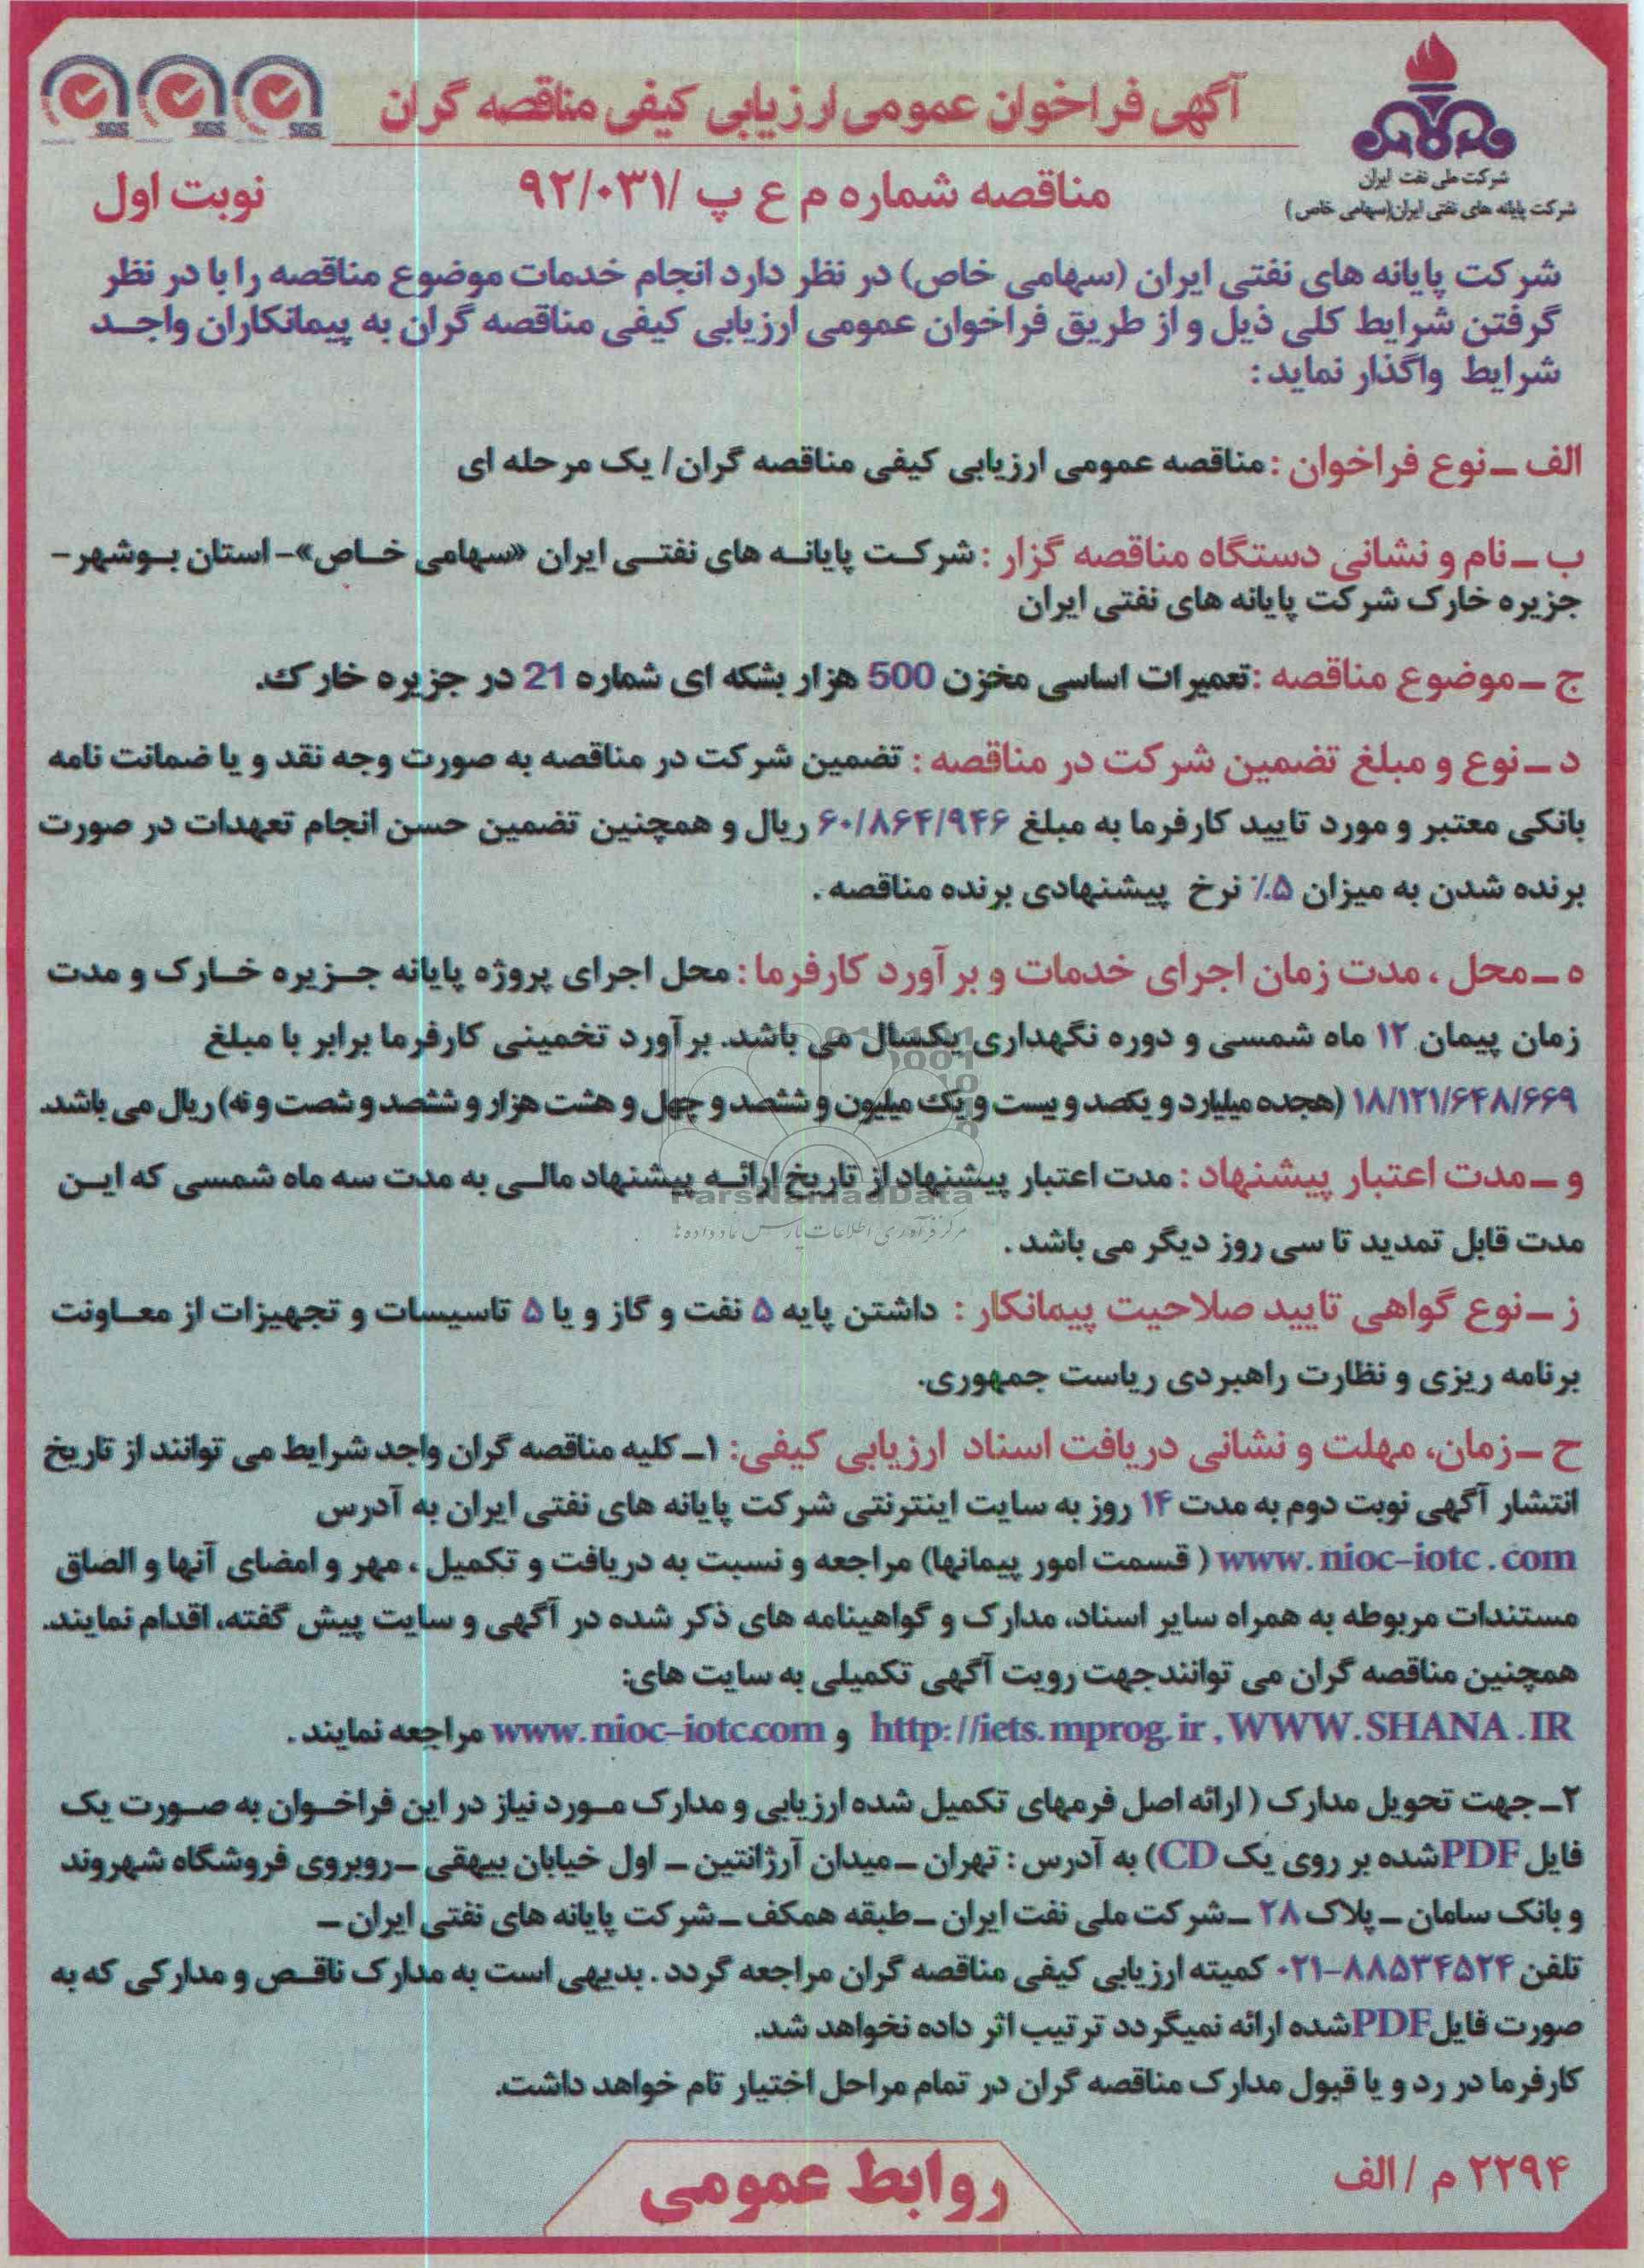 آگهی فراخوان عمومی ارزیابی کیفی مناقصه گران
SGS SGS SGS
شرکت ملی نفت ایران
شرکت پایانه های نفتی ایران(سهامی خاص)
مناقصه شماره م ع پ /۹۲/۰۳۱
نوبت اول
شرکت پایانه های نفتی ایران (سهامی خاص) در نظر دارد انجام خدمات موضوع مناقصه را با در نظر
گرفتن شرایط کلی ذیل و از طریق فراخوان عمومی ارزیابی کیفی مناقصه گران به پیمانکاران واجد
شرایط واگذار نماید:
الف ـ نوع فراخوان : مناقصه عمومی ارزیابی کیفی مناقصه گران/ یک مرحله ای
ب ـ نام و نشانی دستگاه مناقصه گزار : شرکت پایانه های نفتی ایران «سهامی خاص»- استان بوشهر-
جزیره خارک شرکت پایانه های نفتی ایران
ج ـ موضوع مناقصه :تعمیرات اساسی مخزن 500 هزار بشکه ای شماره 21 در جزیره خارک.
د ـ نوع و مبلغ تضمین شرکت در مناقصه : تضمین شرکت در مناقصه به صورت وجه نقد و یا ضمانت نامه
بانکی معتبر و مورد تایید کارفرما به مبلغ ۶۰/۸۶۴/۹۴۶ ریال و همچنین تضمین حسن انجام تعهدات در صورت
برنده شدن به میزان ۵٪ نرخ پیشنهادی برنده مناقصه .
ه ـ محل ، مدت زمان اجرای خدمات و برآورد کارفرما : محل اجرای پروژه پایانه جزیره خارک و مدت
زمان پیمان ۱۲ ماه شمسی و دوره نگهداری یکسال می باشد. برآورد تخمینی کارفرما برابر با مبلغ
۱۸/۱۲۱/۶۴۸/۶۶۹ (هجده میلیارد و یکصد و بیست و یک میلیون و ششصد و چهل و هشت هزار و ششصد و شصت و نه) ریال می باشد.
و ـ مدت اعتبار پیشنهاد : مدت اعتبار پیشنهاد از تاریخ ارائه پیشنهاد مالی به مدت سه ماه شمسی که این
ParsNamadData
مرکز فرآوری اطلاعات پارس نماد داده ها
مدت قابل تمدید تا سی روز دیگر می باشد .
ز ـ نوع گواهی تایید صلاحیت پیمانکار : داشتن پایه ۵ نفت و گاز و یا ۵ تاسیسات و تجهیزات از معاونت
برنامه ریزی و نظارت راهبردی ریاست جمهوری.
ح ـ زمان، مهلت و نشانی دریافت اسناد ارزیابی کیفی: ۱ـ کلیه مناقصه گران واجد شرایط می توانند از تاریخ
انتشار آگهی نوبت دوم به مدت ۱۴ روز به سایت اینترنتی شرکت پایانه های نفتی ایران به آدرس
www.nioc-iotc.com ( قسمت امور پیمانها) مراجعه و نسبت به دریافت و تکمیل ، مهر و امضای آنها و الصاق
مستندات مربوطه به همراه سایر اسناد، مدارک و گواهینامه های ذکر شده در آگهی و سایت پیش گفته، اقدام نمایند.
همچنین مناقصه گران می توانندجهت رویت آگهی تکمیلی به سایت های:
http://iets.mprog.ir , WWW.SHANA.IR و www.nioc-iotc.com مراجعه نمایند .
۲ـ جهت تحویل مدارک ( ارائه اصل فرمهای تکمیل شده ارزیابی و مدارک مورد نیاز در این فراخوان به صورت یک
فایل PDF شده بر روی یک CD) به آدرس : تهران ـ میدان آرژانتین ـ اول خیابان بیهقی ـ روبروی فروشگاه شهروند
و بانک سامان ـ پلاک ۲۸ ـ شرکت ملی نفت ایران ـ طبقه همکف ـ شرکت پایانه های نفتی ایران ـ
تلفن ۸۸۵۳۴۵۲۴-۰۲۱ کمیته ارزیابی کیفی مناقصه گران مراجعه گردد . بدیهی است به مدارک ناقص و مدارکی که به
صورت فایل PDF شده ارائه نمیگردد ترتیب اثر داده نخواهد شد.
کارفرما در رد و یا قبول مدارک مناقصه گران در تمام مراحل اختیار تام خواهد داشت.
۲۲۹۴ م / الف
روابط عمومی